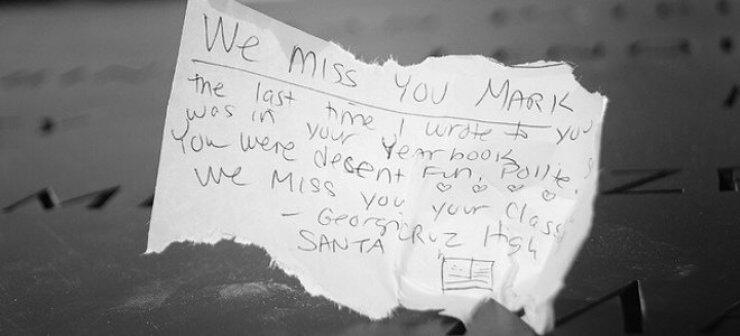 We miss you MARK
the last time I wrote to you
was in your Yearbook
You were descent Fun, Polite,
We Miss you your Class
- Georgi
SANTA CRUZ High